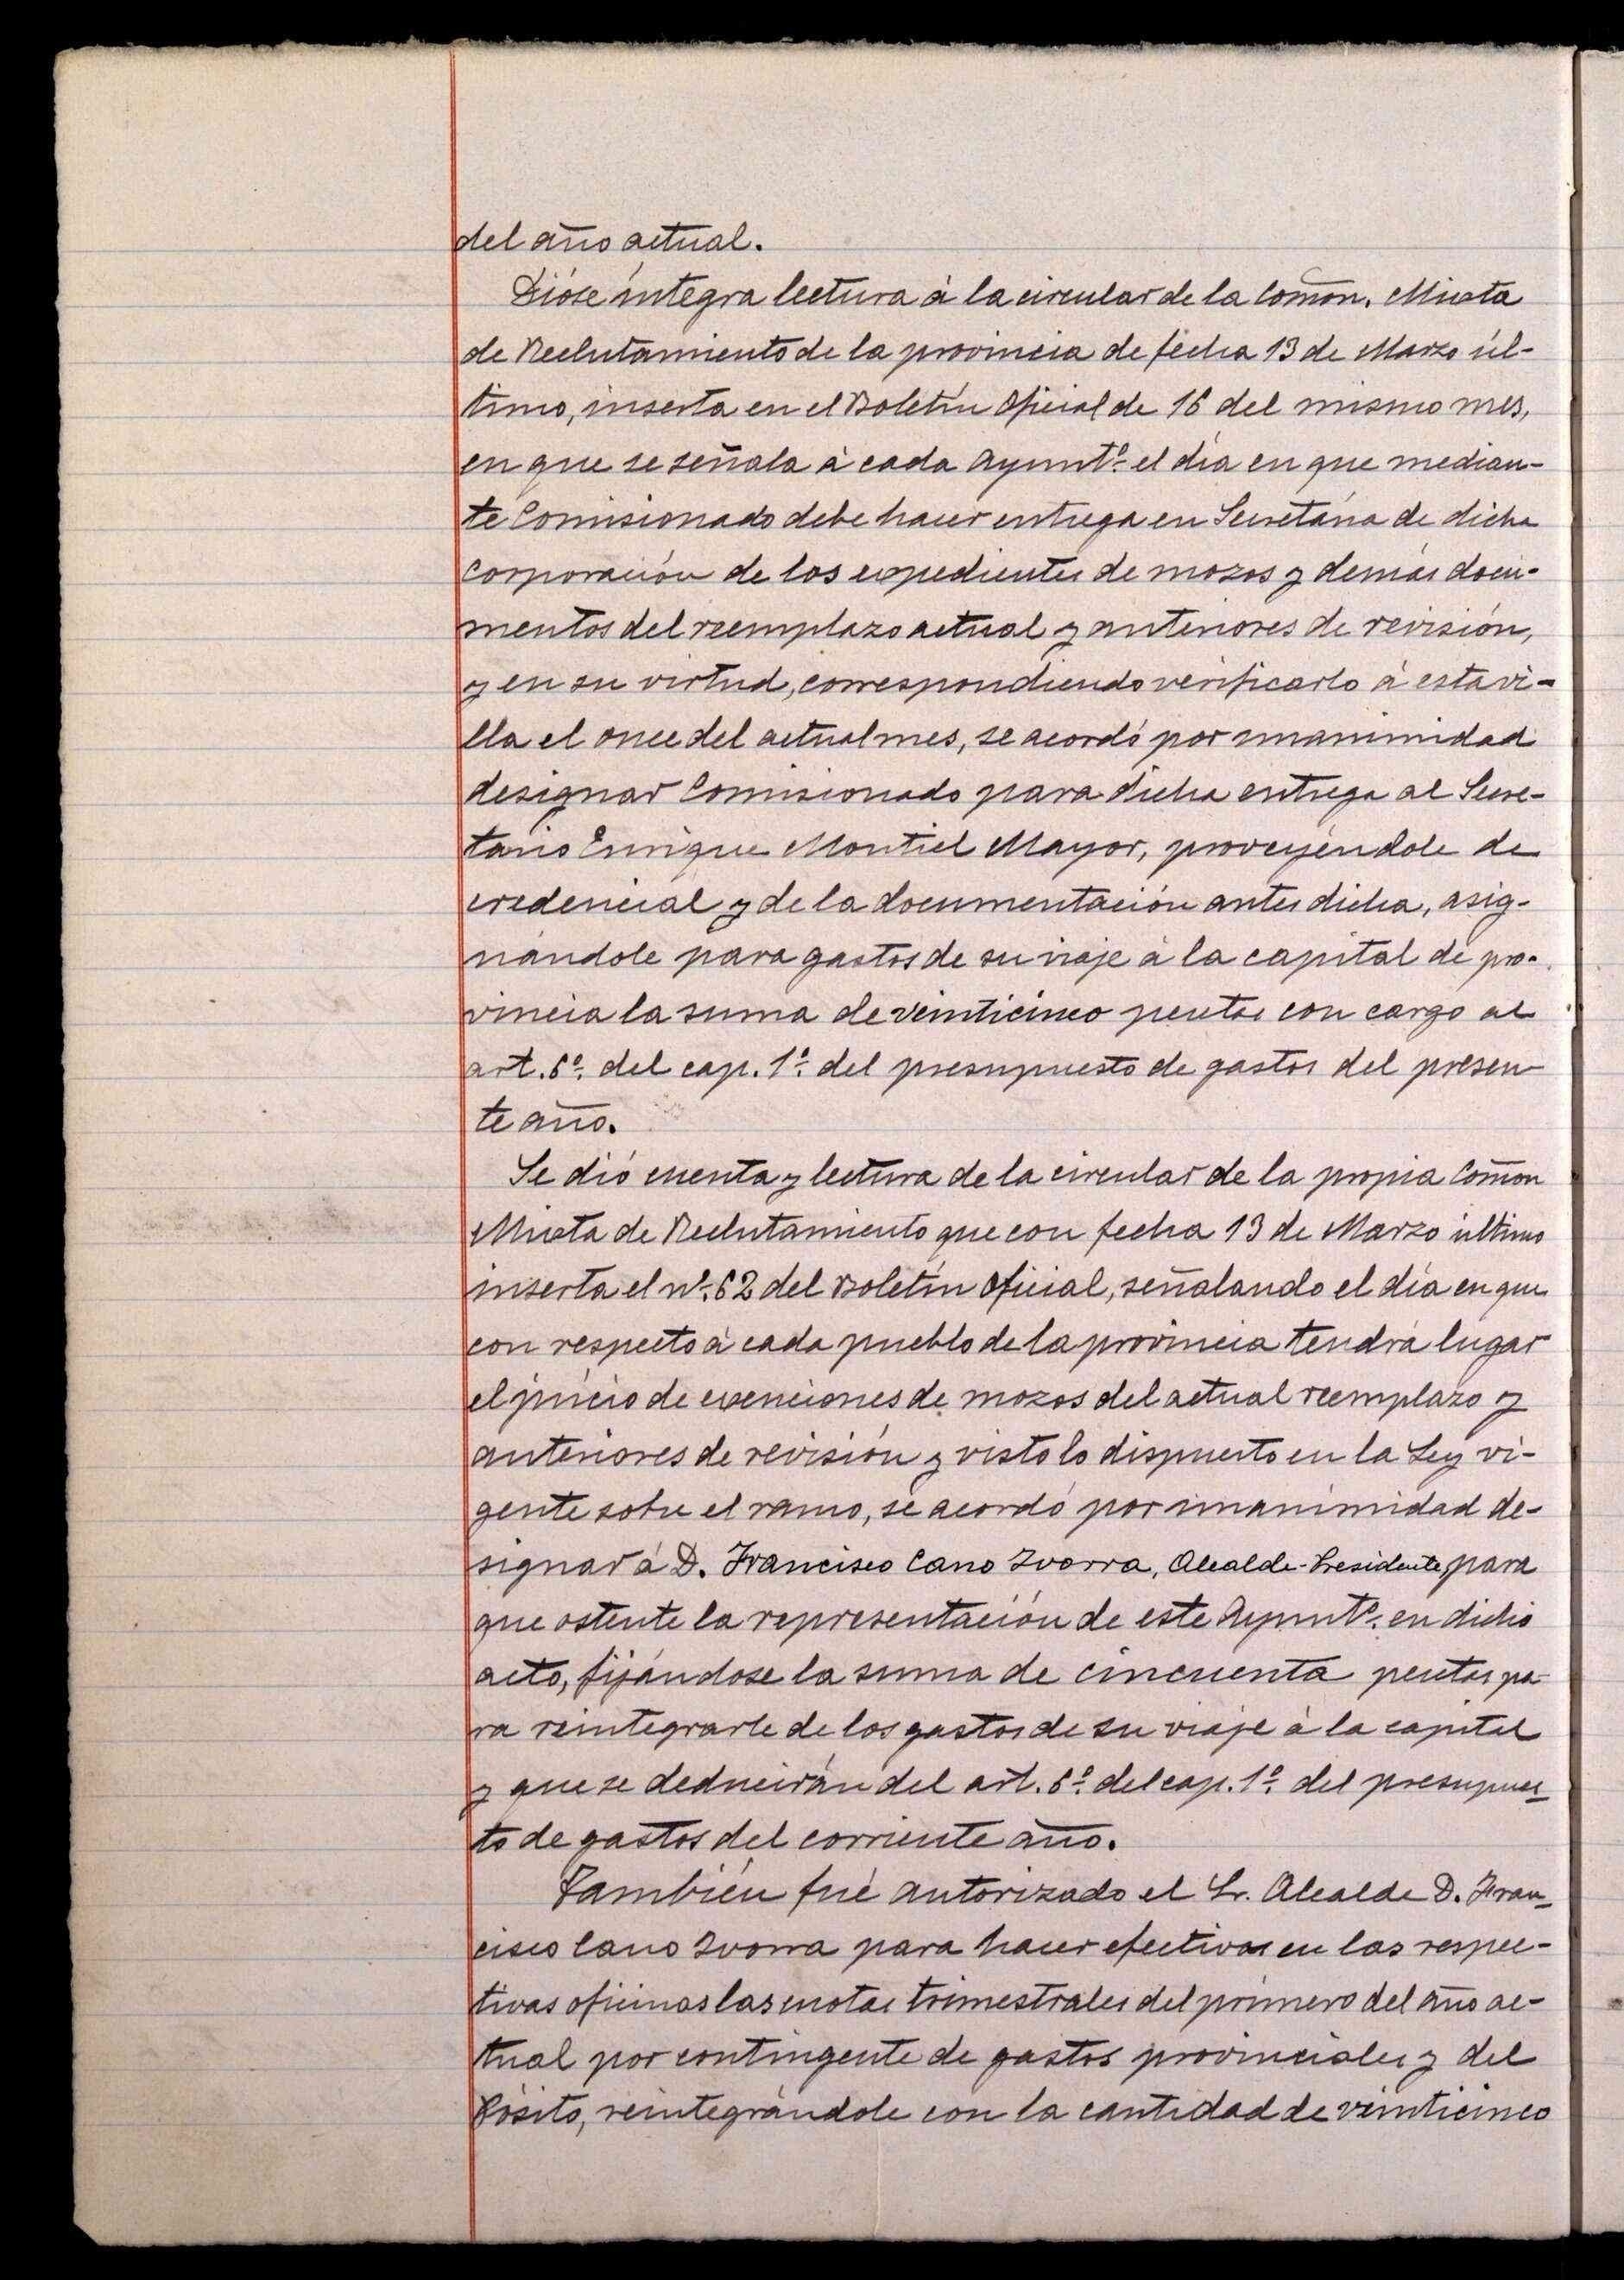 del año actual.
Dióse íntegra lectura á la circular de la Comón. Mixta
de Reclutamiento de la provincia de fecha 13 de Marzo úl-
timo, inserta en el Boletín Oficial de 16 del mismo mes,
en que se señala á cada Ayuntº. el día en que median-
te Comisionado debe hacer entrega en Secretaría de dicha
Corporación de los expedientes de mozos y demás docu-
mentos del reemplazo actual y anteriores de revisión,
y en su virtud, correspondiendo verificarlo á esta vi-
lla el once del actual mes, se acordó por unanimidad
designar Comisionado para dicha entrega al Secre-
tario Enrique Montiel Mayor, proveyéndole de
credencial y de la documentación antes dicha, asig-
nándole para gastos de su viaje á la capital de pro-
vincia la suma de veinticinco pesetas con cargo al
art. 6º. del cap. 1º. del presupuesto de gastos del presen-
te año.
Se dió cuenta y lectura de la circular de la propia Comón
Mixta de Reclutamiento que con fecha 13 de Marzo último
inserta el nº. 62 del Boletín Oficial, señalando el día en que
con respecto á cada pueblo de la provincia tendrá lugar
el juicio de exenciones de mozos del actual reemplazo y
anteriores de revisión y visto lo dispuesto en la Ley vi-
gente sobre el ramo, se acordó por unanimidad de-
signar á D. Francisco Cano Ivorra, Alcalde-Presidente, para
que ostente la representación de este Ayuntº. en dicho
acto, fijándose la suma de cincuenta pesetas pa-
ra reintegrarle de los gastos de su viaje á la capital
y que se deducirán del art. 6º. del cap. 1º. del presupues-
to de gastos del corriente año.
También fué autorizado el Sr. Alcalde D. Fran-
cisco Cano Ivorra para hacer efectivas en las respec-
tivas oficinas las cuotas trimestrales del primero del año ac-
tual por contingente de gastos provinciales y del
Pósito, reintegrándole con la cantidad de veinticinco